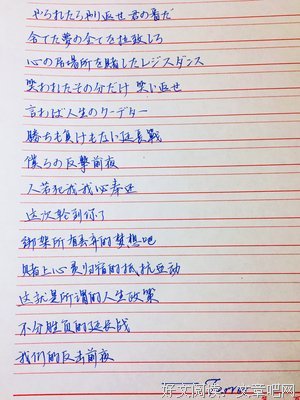 やられたらやり返せ 君の番だ
全てた夢の全てを拉致しろ
心の居場所を賭したレジスタンス
笑われたその分だけ 笑い返せ
言わば人生のクーデター
勝ちも負けもない延長戦
僕らの反撃前夜
人若犯我我必奉还
这次轮到你了
绑架所有丢弃的梦想吧
赌上心灵归宿的抵抗互动
这就是所谓的人生政策
不分胜负的延长战
我们的反击前夜
好文阅读：文章吧网